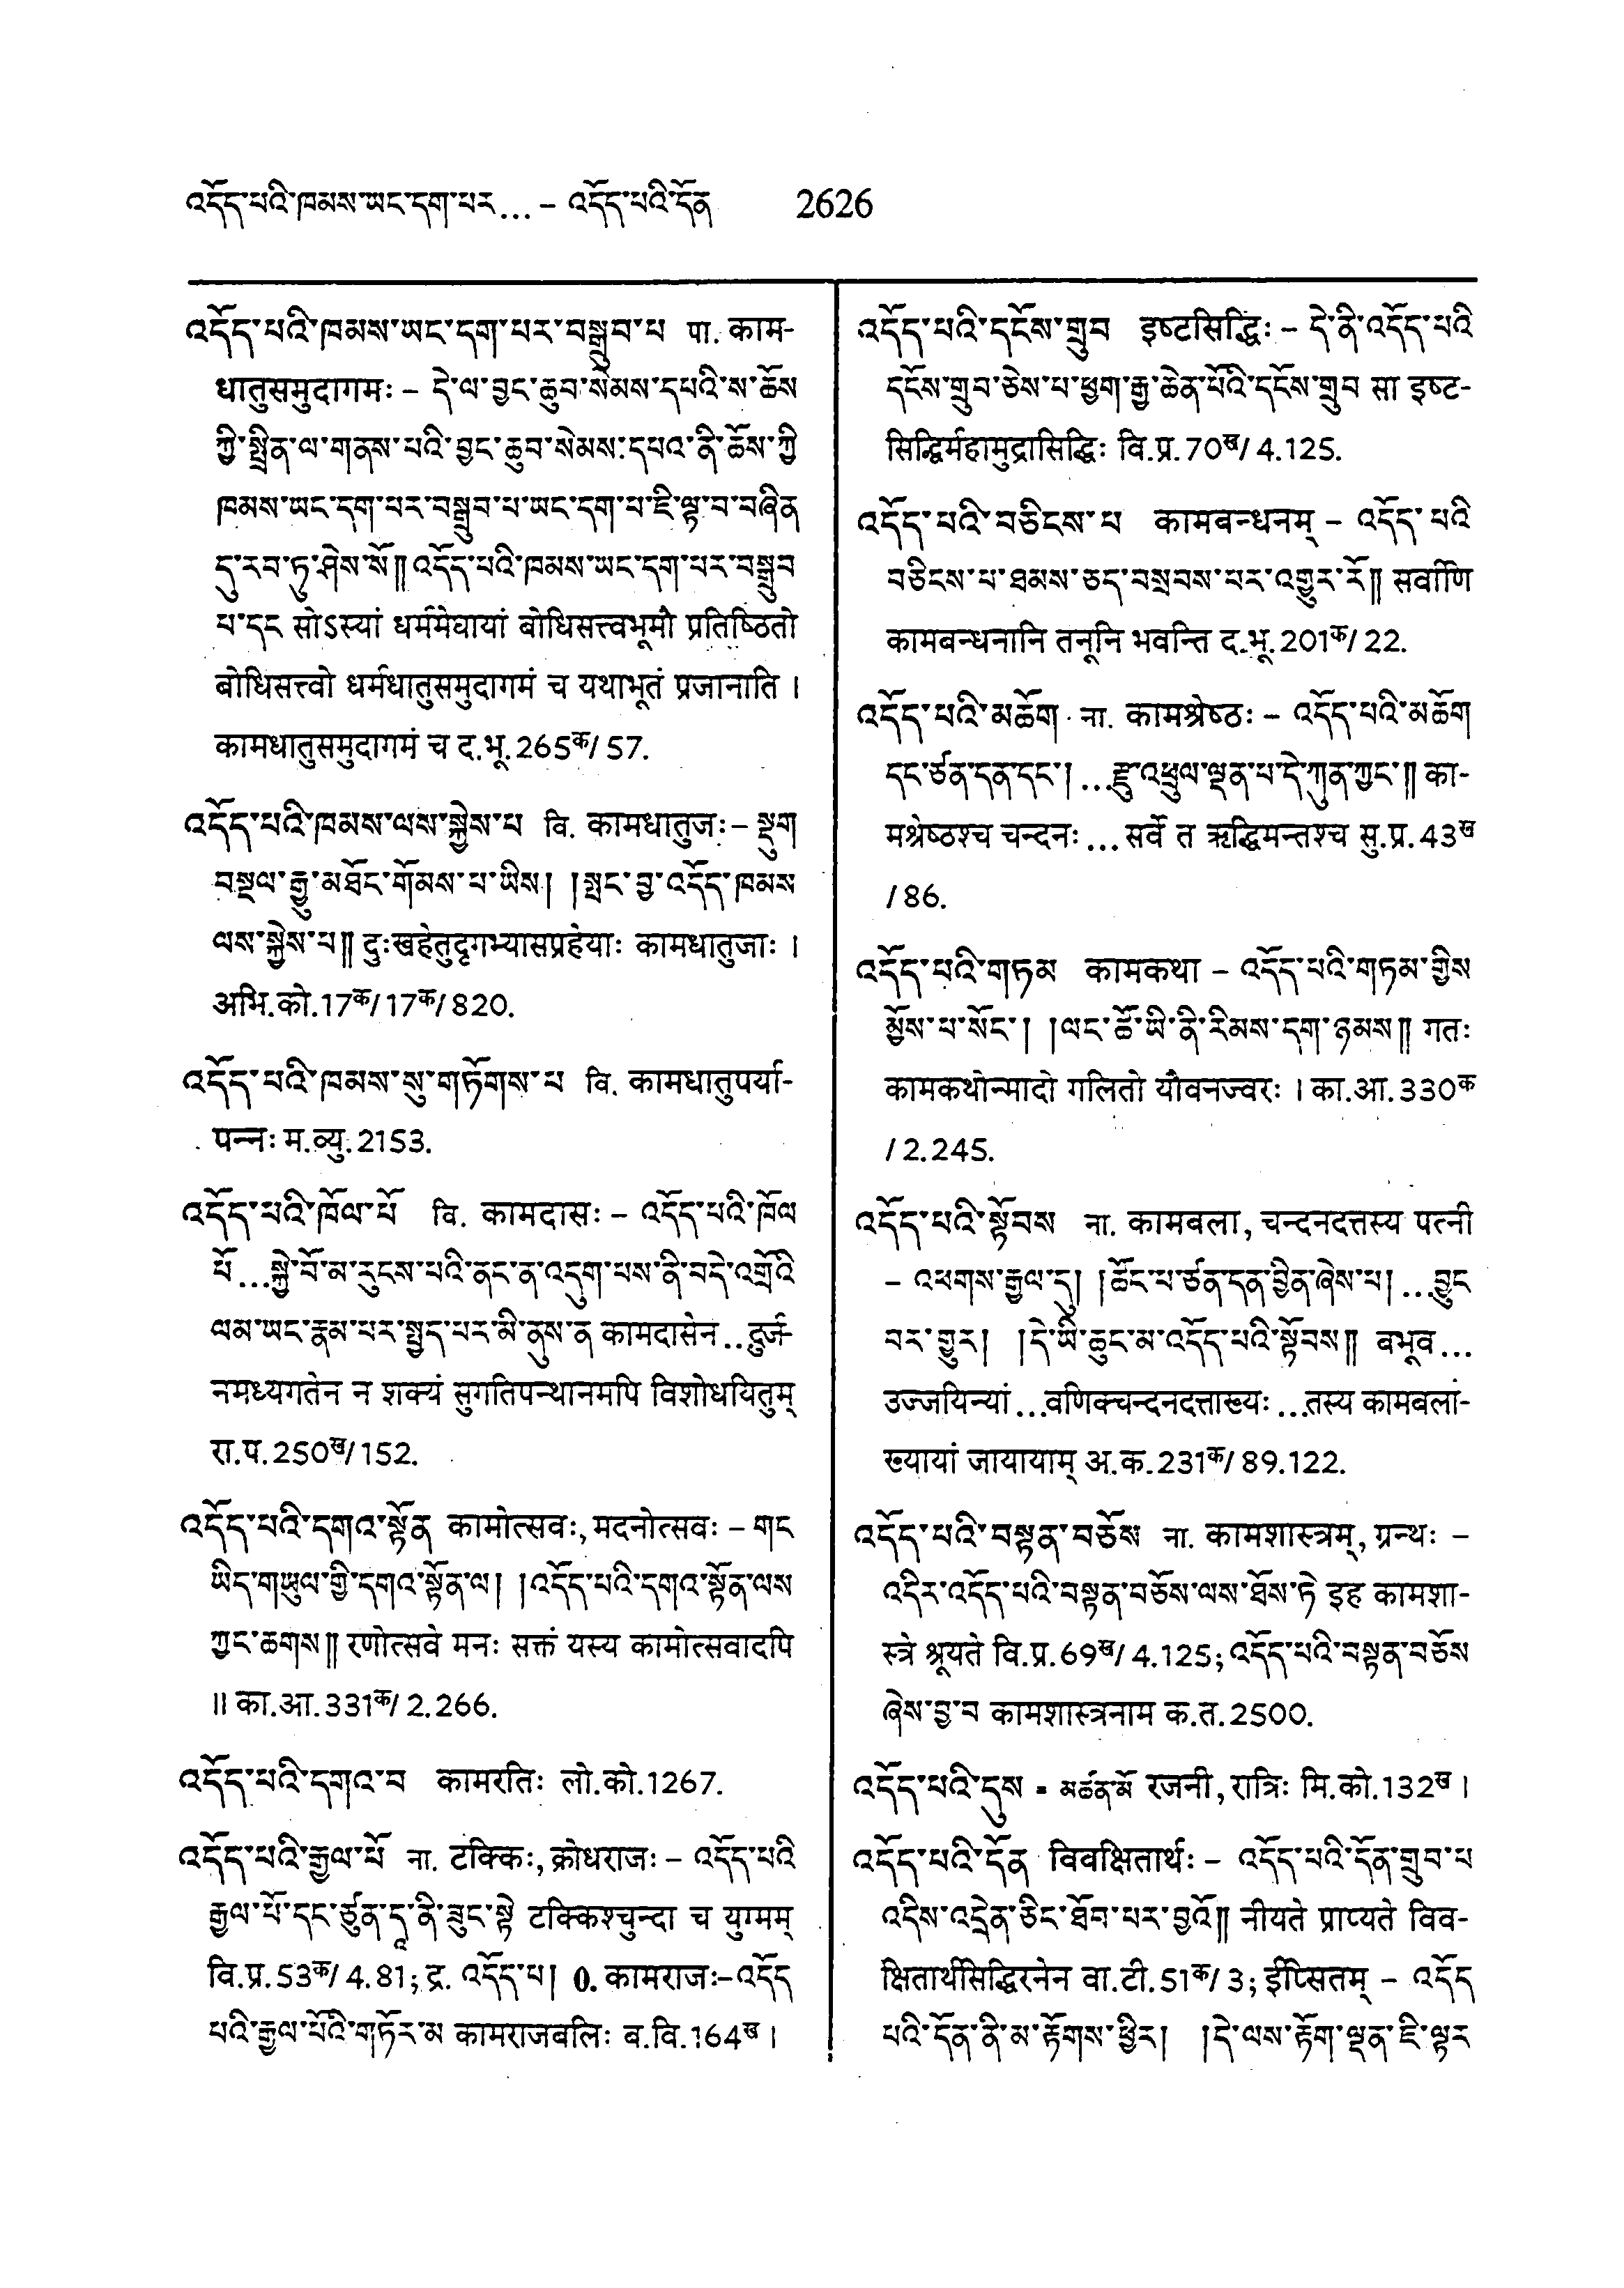 འདོད་པའི་ཁམས་ཡང་དག་པར... – འདོད་པའི་དོན 2626
འདོད་པའི་ཁམས་ཡང་དག་པར་བསྒྲུབ་པ पा. काम-
धातुसमुदागमः – དེ་ལ་བྱང་ཆུབ་སེམས་དཔའི་ས་ཆོས
ཀྱི་སྤྲིན་ལ་གནས་པའི་བྱང་ཆུབ་སེམས་དཔའ་ནི་ཆོས་ཀྱི
ཁམས་ཡང་དག་པར་བསྒྲུབ་པ་ཡང་དག་པ་ཇི་ལྟ་བ་བཞིན
དུ་རབ་ཏུ་ཤེས་སོ༎ འདོད་པའི་ཁམས་ཡང་དག་པར་བསྒྲུབ
པ་དང सोऽस्यां धर्ममेघायां बोधिसत्त्वभूमौ प्रतिष्ठितो
बोधिसत्त्वो धर्मधातुसमुदागमं च यथाभूतं प्रजानाति ।
कामधातुसमुदागमं च द.भू.265क/57.
འདོད་པའི་ཁམས་ལས་སྐྱེས་པ वि. कामधातुजः – སྡུག
བསྔལ་རྒྱུ་མཐོང་གོམས་པ་ཡིས། །སྤང་བྱ་འདོད་ཁམས
ལས་སྐྱེས་པ༎ दुःखहेतुदृगभ्यासप्रहेयाः कामधातुजाः ।
अभि.को.17क/17क/820.
འདོད་པའི་ཁམས་སུ་གཏོགས་པ वि. कामधातुपर्या-
पन्नः म.व्यु.2153.
འདོད་པའི་ཁོལ་པོ वि. कामदासः – འདོད་པའི་ཁོལ
པོ...སྐྱེ་བོ་མ་རུངས་པའི་ནང་ན་འདུག་པས་ནི་བདེ་འགྲོའི
ལམ་ཡང་རྣམ་པར་སྤྱད་པར་མི་ནུས་ན कामदासेन..दुर्ज-
नमध्यगतेन न शक्यं सुगतिपन्थानमपि विशोधयितुम्
रा.प.250ख/152.
འདོད་པའི་དགའ་སྟོན कामोत्सवः, मदनोत्सवः – གང
ཡིད་གཡུལ་གྱི་དགའ་སྟོན་ལ། །འདོད་པའི་དགའ་སྟོན་ལས
ཀྱང་ཆགས༎ रणोत्सवे मनः सक्तं यस्य कामोत्सवादपि
॥ का.आ.331क/2.266.
འདོད་པའི་དགའ་བ कामरतिः लो.को.1267.
འདོད་པའི་རྒྱལ་པོ ना. टक्किः, क्रोधराजः – འདོད་པའི
རྒྱལ་པོ་དང་ཙུན་དཱ་ནི་ཟུང་སྟེ टक्किश्चुन्दा च युग्मम्
वि.प्र.53क/4.81; द्र. འདོད་པ། 0. कामराजः – འདོད
པའི་རྒྱལ་པོའི་གཏོར་མ कामराजबलिः ब.वि.164ख ।
འདོད་པའི་དངོས་གྲུབ इष्टसिद्धिः – དེ་ནི་འདོད་པའི
དངོས་གྲུབ་ཅེས་པ་ཕྱག་རྒྱ་ཆེན་པོའི་དངོས་གྲུབ सा इष्ट-
सिद्धिर्महामुद्रासिद्धिः वि.प्र.70ख/4.125.
འདོད་པའི་བཅིངས་པ कामबन्धनम् – འདོད་པའི
བཅིངས་པ་ཐམས་ཅད་བསྲབས་པར་འགྱུར་རོ༎ सर्वाणि
कामबन्धनानि तनूनि भवन्ति द.भू.201क/22.
འདོད་པའི་མཆོག ना. कामश्रेष्ठः – འདོད་པའི་མཆོག
དང་ཙནྡན་དང་། ...རྫུ་འཕྲུལ་ལྡན་པ་དེ་ཀུན་ཀྱང་༎ का-
मश्रेष्ठश्च चन्दनः ... सर्वे त ऋद्धिमन्तश्च सु.प्र.43ख
/86.
འདོད་པའི་གཏམ कामकथा – འདོད་པའི་གཏམ་གྱིས
མྱོས་པ་སོང་། །ལང་ཚོ་ཡི་ནི་རིམས་དག་ཉམས༎ गतः
कामकथोन्मादो गलितो यौवनज्वरः । का.आ.330क
/2.245.
འདོད་པའི་སྟོབས ना. कामबला, चन्दनदत्तस्य पत्नी
– འཕགས་རྒྱལ་དུ། །ཚོང་པ་ཙན་དན་བྱིན་ཞེས་པ། ...བྱུང
བར་གྱུར། །དེ་ཡི་ཆུང་མ་འདོད་པའི་སྟོབས༎ बभूव...
उज्जयिन्यां...वणिक्चन्दनदत्ताख्यः ...तस्य कामबला-
ख्यायां जायायाम् अ.क.231क/89.122.
འདོད་པའི་བསྟན་བཅོས ना. कामशास्त्रम्, ग्रन्थः –
འདིར་འདོད་པའི་བསྟན་བཅོས་ལས་ཐོས་ཏེ इह कामशा-
स्त्रे श्रूयते वि.प्र.69ख/4.125; འདོད་པའི་བསྟན་བཅོས
ཞེས་བྱ་བ कामशास्त्रनाम क.त.2500.
འདོད་པའི་དུས = མཚན་མོ रजनी, रात्रिः मि.को.132ख ।
འདོད་པའི་དོན विवक्षितार्थः – འདོད་པའི་དོན་གྲུབ་པ
འདིས་འདྲེན་ཅིང་ཐོབ་པར་བྱའོ༎ नीयते प्राप्यते विव-
क्षितार्थसिद्धिरनेन वा.टी.51क/3; ईप्सितम् – འདོད
པའི་དོན་ནི་མ་རྟོགས་ཕྱིར། །དེ་ལས་རྟོག་ལྡན་ཇི་ལྟར